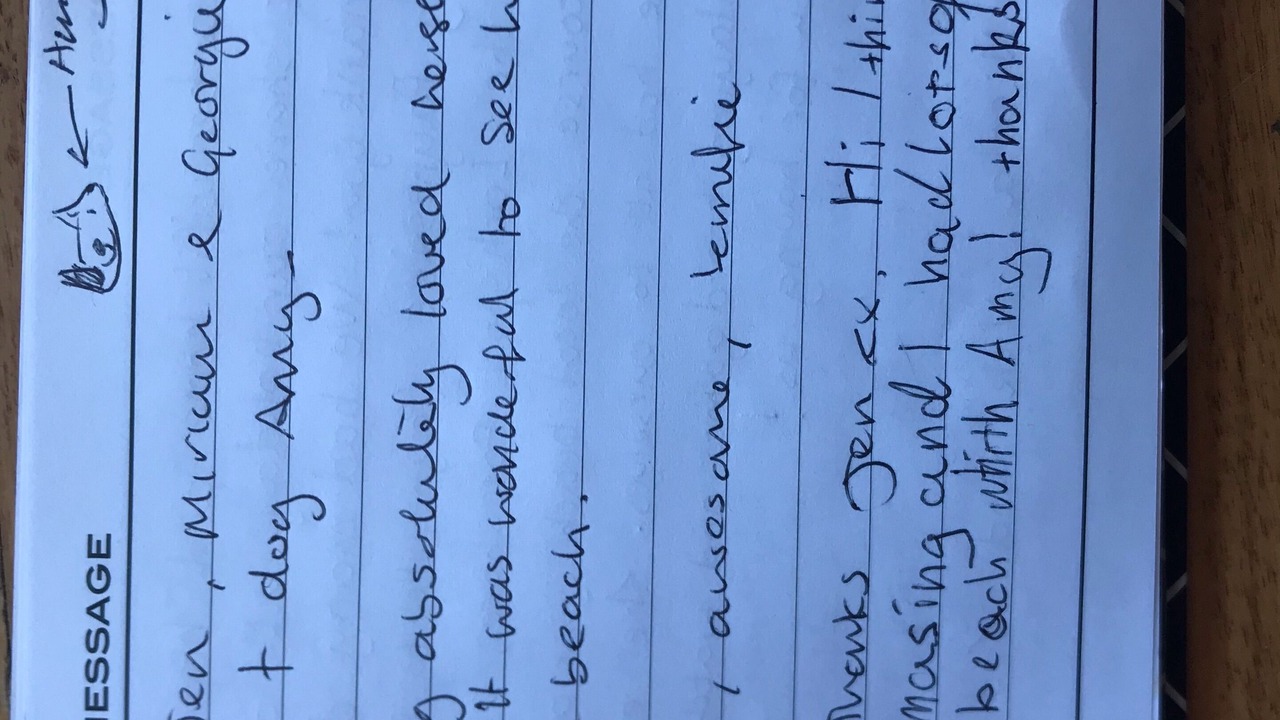 MESSAGE
Jen, Miriam & Georgie
+ dog Amy
absolutely loved
It was wonderful to see h
beach.
, awesome, terrific
Thanks Jen <x. Hi I thin
masing and I had lots of
beach whith Amy! thanks